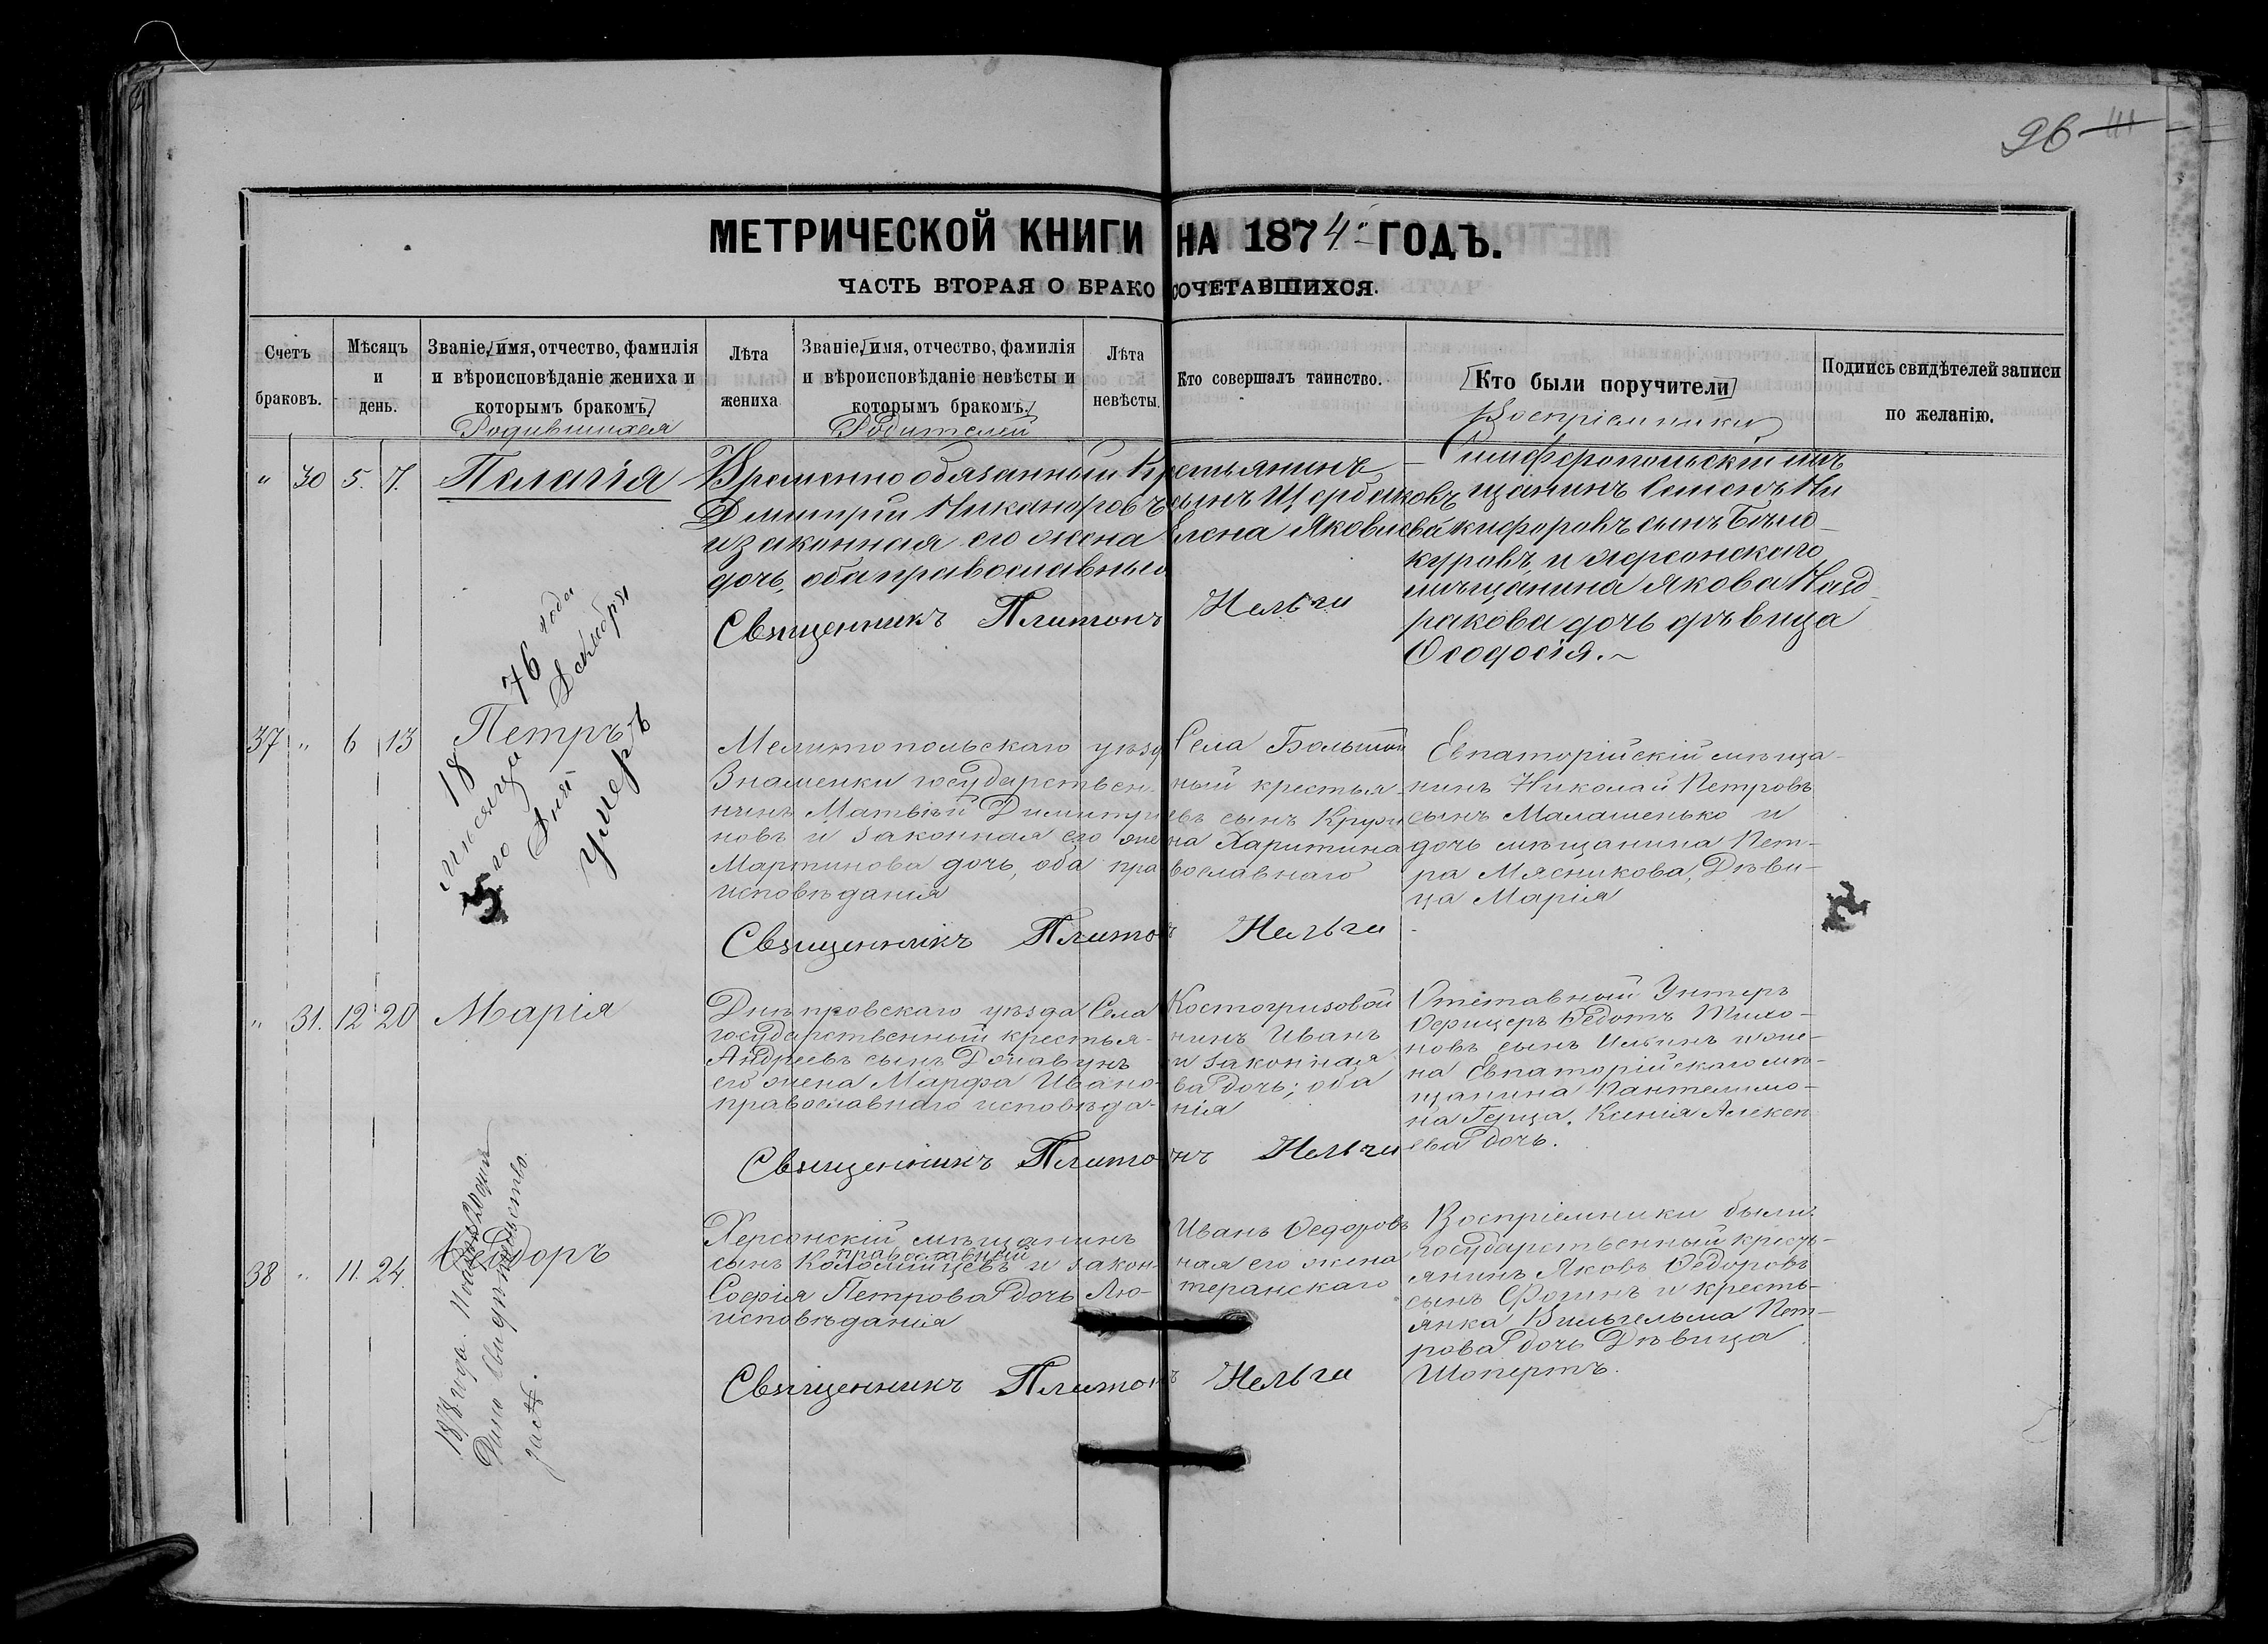 96
МЕТРИЧЕСКОЙ КНИГИ НА 1874 ГОДЪ.
ЧАСТЬ ВТОРАЯ О БРАКОСОЧЕТАВШИХСЯ.
Счетъ браковъ.
Мѣсяцъ и день.
Званіе, имя, отчество, фамилія
и вѣроисповѣданіе жениха и
которымъ бракомъ.
Родившихся
Лѣта жениха
Званіе, имя, отчество, фамилія
и вѣроисповѣданіе невѣсты и
которымъ бракомъ.
Родителей
Лѣта невѣсты.
Кто совершалъ таинство.
Кто были поручители
Воспріемники
Подпись свидѣтелей записи
по желанію.
" 30 5. 7. Пелагія
Временно обязанный Крестьянинъ
Димитрій Никаноровъ сынъ Щербаковъ
и законная его жена Елена Яковлева
дочь, оба православные
Священникъ Платонъ
Симферопольскій мѣ
щанинъ Семенъ Ни
кифоровъ сынъ Бѣло-
куровъ, и херсонскаго
мѣщанина Якова
дочь дѣвица
Ѳеодосія.~
37 " 6 13 Петръ
18 76 года
мѣсяца Декабря
5го дня
умеръ
Мелитопольскаго уѣзд Села Большой
Знаменки государственный крестья-
нинъ Матвѣй Димитріевъ сынъ
новъ и законная его жена Харитина
Мартинова дочь, оба православнаго
исповѣданія
Священникъ Платонъ
Евпаторійскій мѣща-
нинъ Николай Петровъ
сынъ Малашенько и
дочь мѣщанина Пет-
ра Мясникова, Дѣви-
ца Марія
" 31. 12 20 Марія
Днѣпровскаго уѣзда Села Костогризовой
государственный крестья-нинъ Иванъ
Андреевъ сынъ и законная
его жена Марфа Ивано-ва дочь; оба
православнаго исповѣда-нія
Священникъ Платонъ
Отставной Унтеръ
Офицеръ Ѳедотъ Тихо-
новъ сынъ Ильинъ и же-
на Евпаторійскаго мѣ-
щанина Пантелимо-
на Герца, Ксенія Алексѣ
ева дочь.
38 " 11. 24. Ѳеодоръ
1878 года.
Дано свидѣтельство.
Херсонскій мѣщанинъ Иванъ Ѳедоровъ
православный
сынъ Коломійцевъ и закон-ная его жена
Софія Петрова дочь Лю-теранскаго
исповѣданія
Священникъ Платонъ
Воспріемники были:
государственный кресть-
янинъ Яковъ Ѳедоровъ
сынъ Фоминъ и кресть-
янка Вильгельма Пет-
рова дочь Дѣвица
Шопертъ.